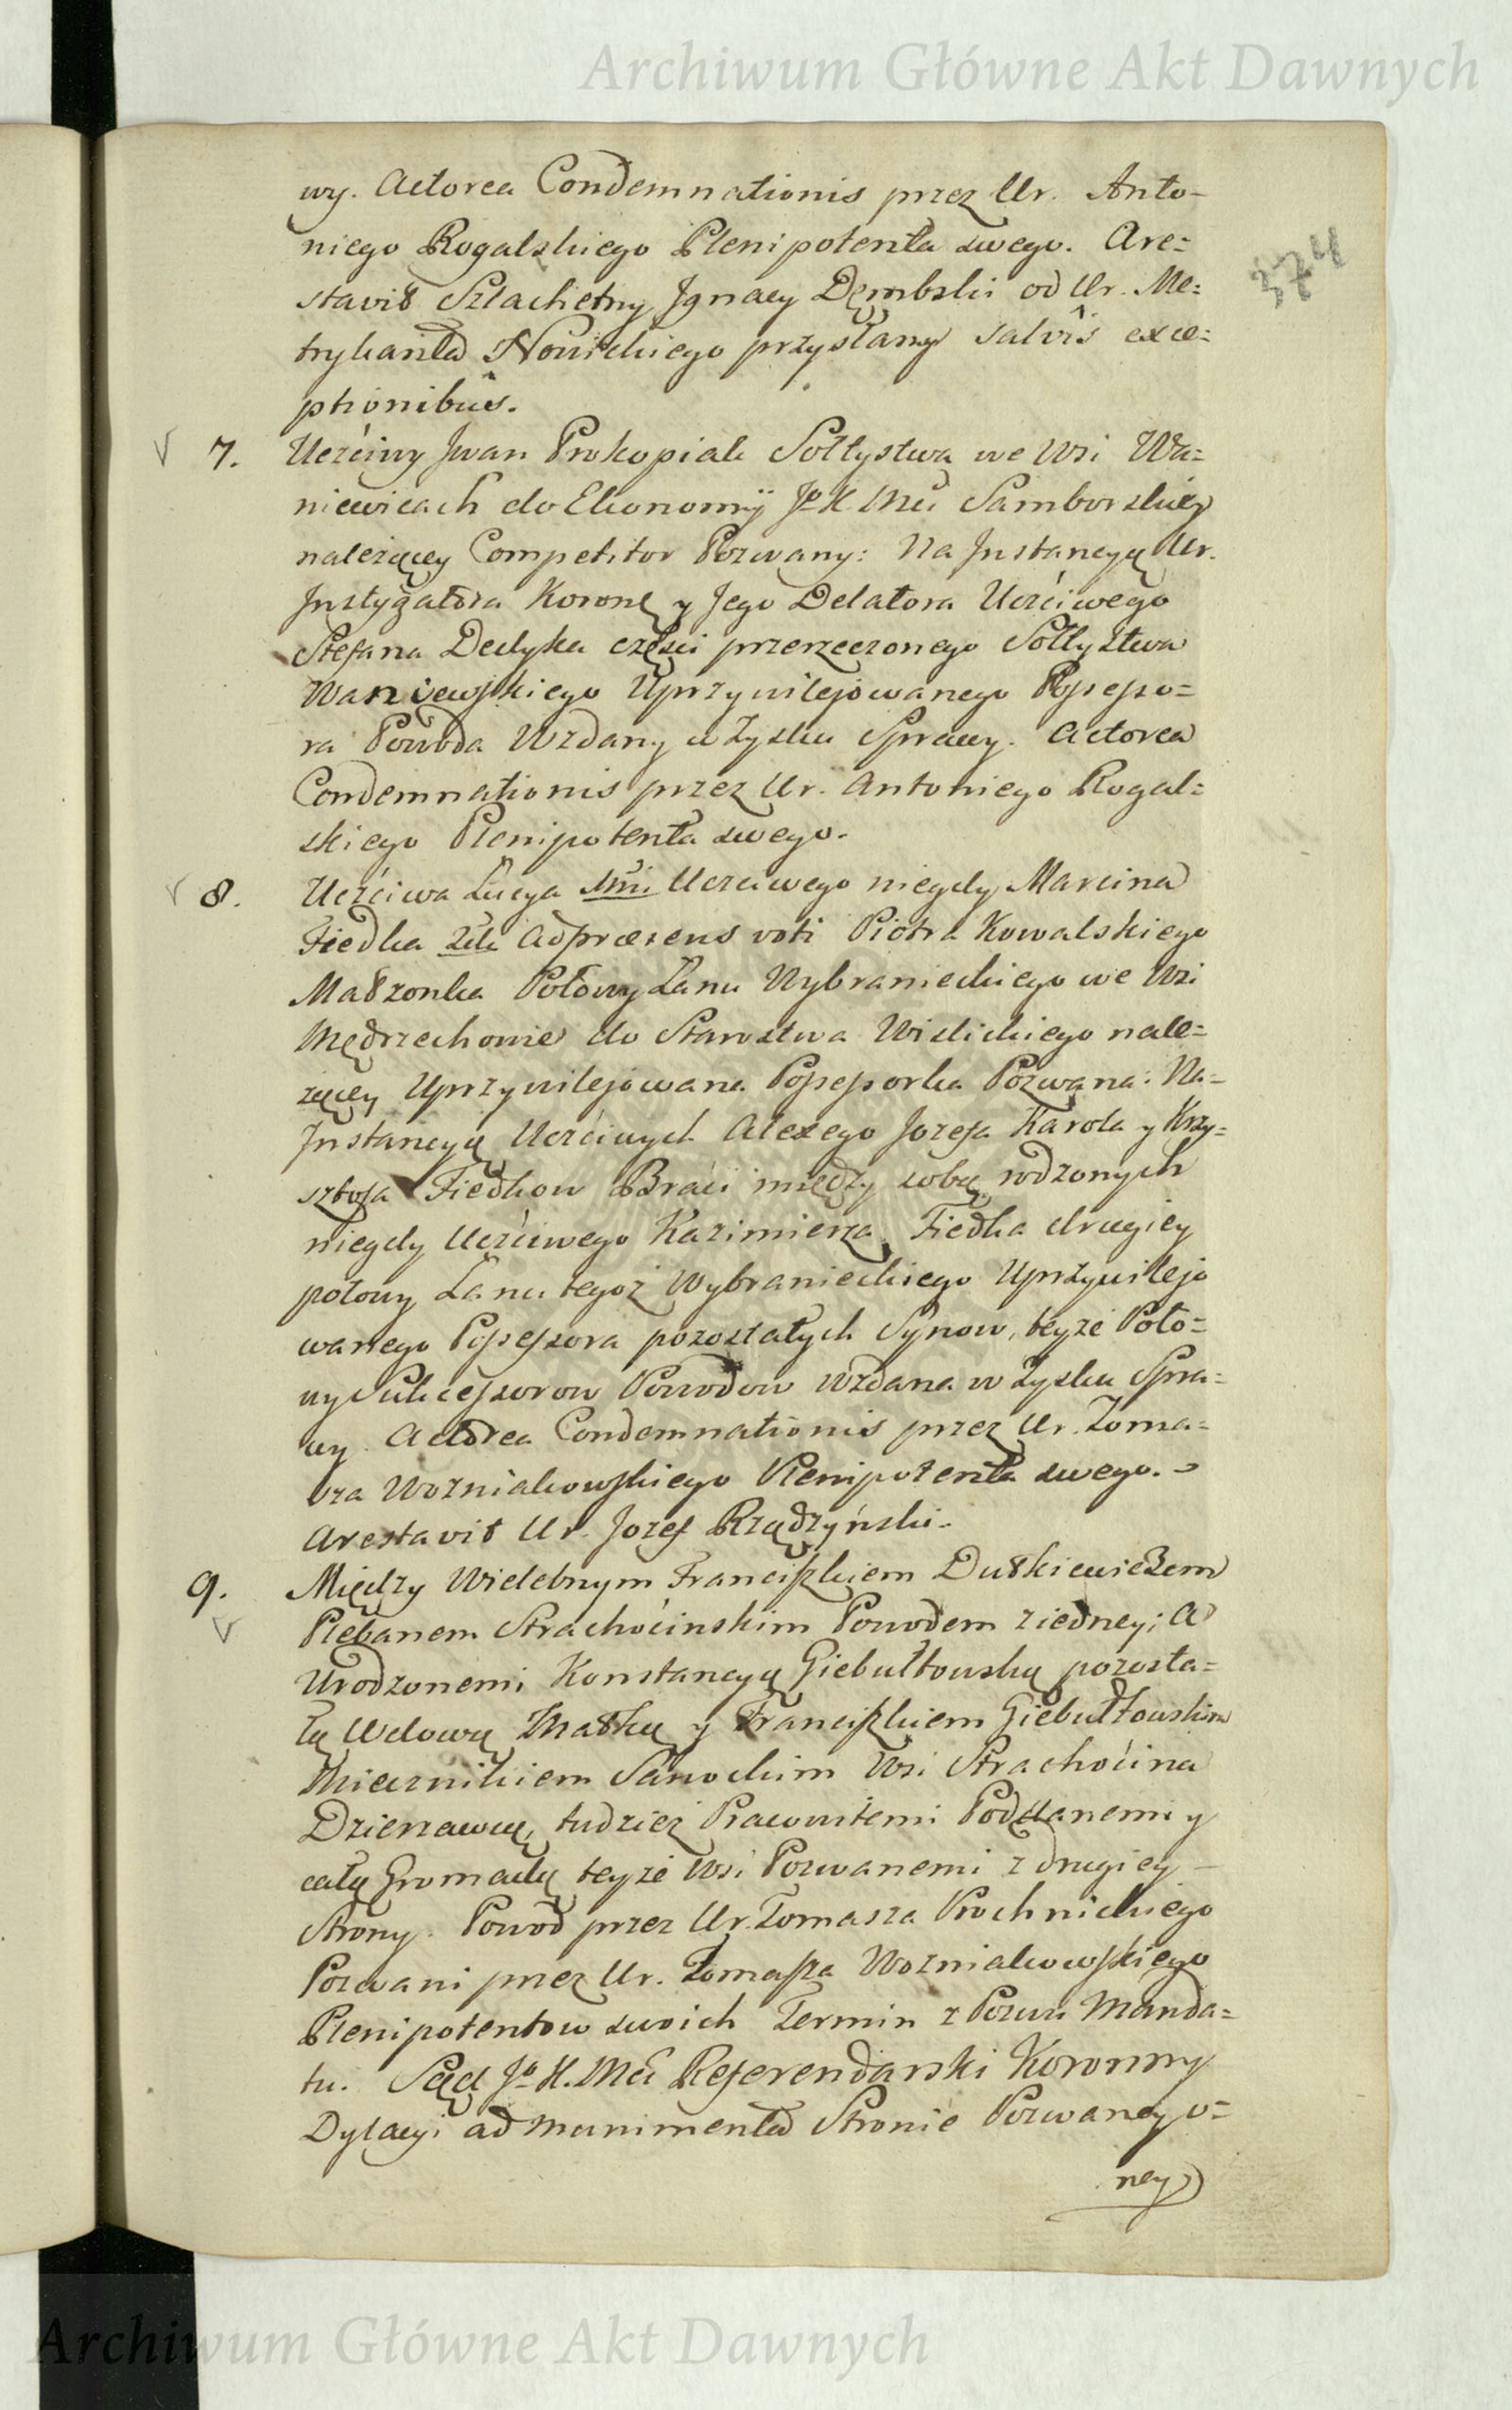 Archiwum Główne Akt Dawnych
374
wy. Actorea Condemnationis przez Ur. Anto-
niego Rogalskiego Plenipotenta swego. Are=
stavit Szlachetny Jgnacy Dęmbski od Ur. Me=
trykanta Nowickiego przysłany salvis exce=
ptionibus.
7. Uczciwy Jwan Prokopiak Sołtystwa we Wsi Wa=
niewicach do Ekonomij Jº K. Mci Samborskiey
należący Competitor Pozwany: Na Jnstancyą Ur.
Jnstygatora Koronę y Jego Delatora Uczciwego
Stefana Dedyka części przerzeczonego Sołtystwa
Waniewskiego Uprzywilejowanego Possesso=
ra Powoda Wzdany w Zysku Sprawy. Actorea
Condemnationis przez Ur. Antoniego Rogal=
skiego Plenipotenta swego.
8. Uczciwa Łucya 1mi Uczciwego niegdy Marcina
Fiedka 2di ad præsens voti Piotra Kowalskiego
Małżonka Połowy Łanu Wybranieckiego we Wsi
Mędrzechowie do Starostwa Wislickiego nale=
żącey Uprzywilejowana Possessorka Pozwana: Na=
Jnstancyą Uczciwych Alexego Jozefa Karola y Krzy=
sztofa Fiedkow Braci między sobą rodzonych
niegdy Uczciwego Kazimierza Fiedka drugiey
połowy Łanu tegoż Wybranieckiego Uprzywilejo
wanego Possessora pozostałych Synow, teyże Poło=
wy Sukcessorow Powodow wzdana w Zysku Spra=
wy. Actorea Condemnationis przez Ur. Toma=
sza Wozniakowskiego Plenipotenta swego.
Arestavit Ur. Jozef Rządzyński.
9. Między Wielebnym Franciszkiem Dutkiewiczem
Plebanem Strachocinskim Powodem z iedney; a
Urodzonemi Konstancyą Giebułtowską pozosta=
łą Wdową Matką y Franciszkiem Giebułtowskim
Miecznikiem Sanockim Wsi Strachocina
Dzierzawcą, tudzież Pracowitemi Poddanemi y
całą Gromadą teyże Wsi Pozwanemi z drugiey
Strony. Powod przez Ur. Tomasza Prochnickiego
Pozwani przez Ur. Tomasza Wozniakowskiego
Plenipotentow swoich Termin z Pozwu Manda=
tu. Sąd Jº K. Mci Referendarski Koronny
Dylacyi ad munimenta Stronie Pozwaney o=
ney
Archiwum Główne Akt Dawnych